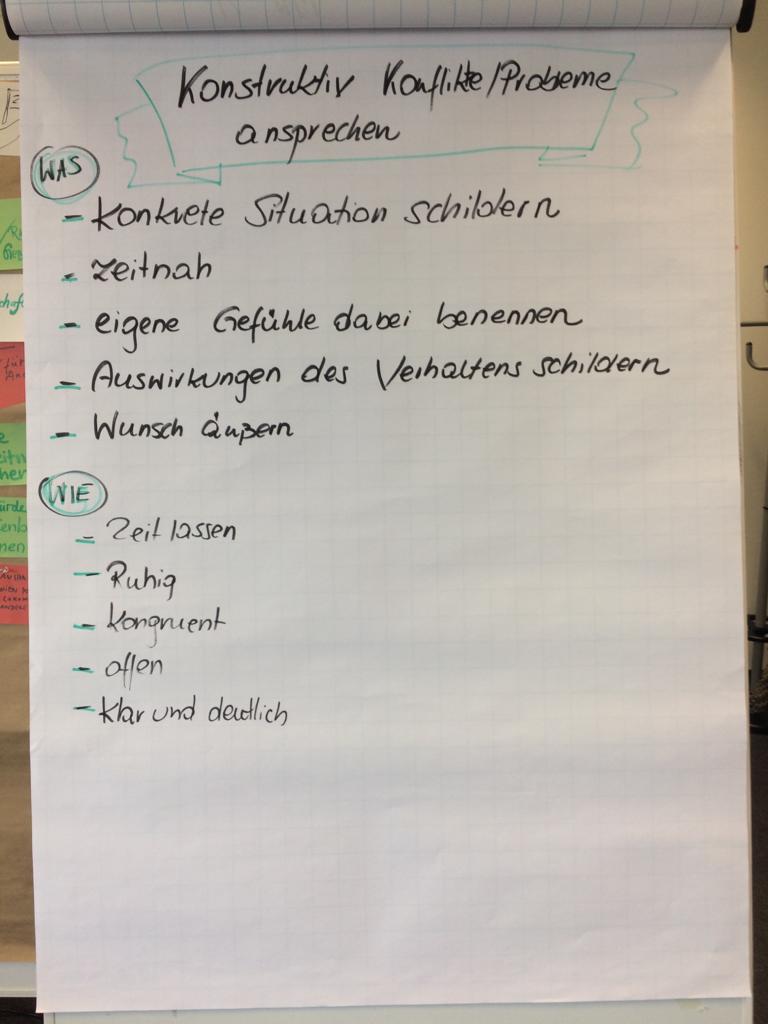 Konstruktiv Konflikte/Probleme
ansprechen
WAS
- Konkrete Situation schildern
- zeitnah
- eigene Gefühle dabei benennen
- Auswirkungen des Verhaltens schildern
- Wunsch äußern
WIE
- Zeit lassen
- Ruhig
- kongruent
- offen
- klar und deutlich